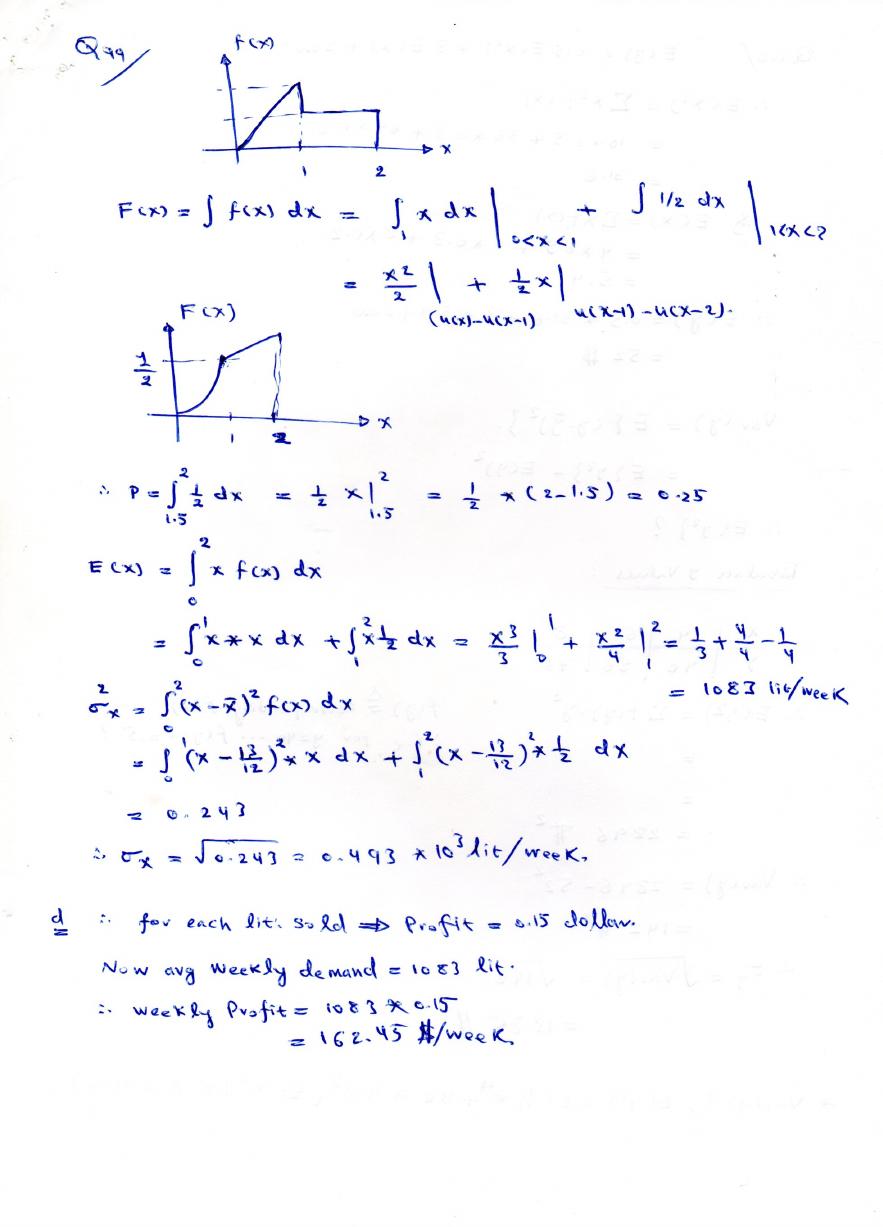 Q99/
f(x)
x
1 2
F(x) = ∫ f(x) dx = ∫₁ x dx |0<x<1 + ∫ 1/2 dx |1<x<2
= x²/2 |(u(x)-u(x-1) + 1/2 x| u(x-1) - u(x-2).
F(x)
1/2
x
1 2
∴ P = ∫₁.₅² 1/2 dx = 1/2 x|₁.₅² = 1/2 * (2-1.5) = 0.25
E(x) = ∫₀² x f(x) dx
= ∫₀¹ x*x dx + ∫₁² x 1/2 dx = x³/3 |₀¹ + x²/4 |₁² = 1/3 + 4/4 - 1/4
= 1083 lit/week
σₓ² = ∫₀² (x - x̄)² f(x) dx
= ∫₀¹ (x - 13/12)² * x dx + ∫₁² (x - 13/12)² * 1/2 dx
= 0.243
∴ σₓ = √0.243 = 0.493 * 10³ lit/week.
d ∴ for each lit. sold ⇒ Profit = 0.15 dollar.
Now avg weekly demand = 1083 lit.
∴ weekly Profit = 1083 * 0.15
= 162.45 $/week.